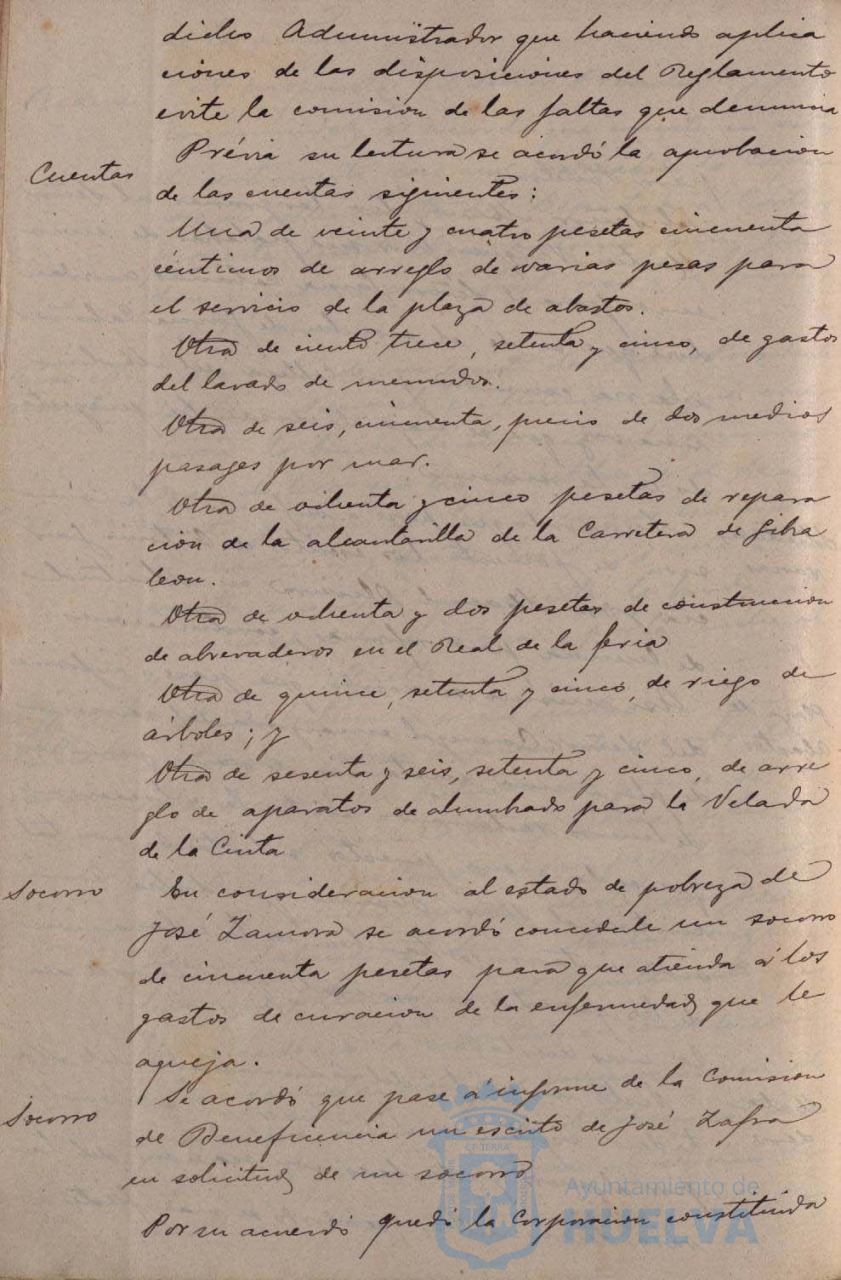 dicho Administrador que haciendo aplica
ciones de las disposiciones del Reglamento
evite la comision de las faltas que denuncia
Cuentas
Prévia su lectura se acordó la aprobacion
de las cuentas siguientes:
Una de veinte y cuatro pesetas cincuenta
céntimos de arreglo de varias pesas para
el servicio de la plaza de abastos.
Otra de ciento trece, setenta y cinco, de gastos
del lavado de menudos.
Otra de seis, cincuenta, precio de dos medios
pasages por mar.
Otra de ochenta y cinco pesetas de repara
cion de la alcantarilla de la Carretera de Gibra
leon.
Otra de ochenta y dos pesetas de construccion
de abrevaderos en el Real de la feria
Otra de quince, setenta y cinco, de riego de
árboles; y
Otra de sesenta y seis, setenta y cinco, de arre
glo de aparatos de alumbrado para la Velada
de la Cinta
Socorro
En consideracion al estado de pobreza de
José Zamora se acordó concederle un socorro
de cincuenta pesetas para que atienda á los
gastos de curacion de la enfermedad que le
aqueja.
Socorro
Se acordó que pase á informe de la Comision
de Beneficencia un escrito de José Zafra
en solicitud de un socorro
Por su acuerdo quedó la Corporacion constituida
Ayuntamiento de
HUELVA